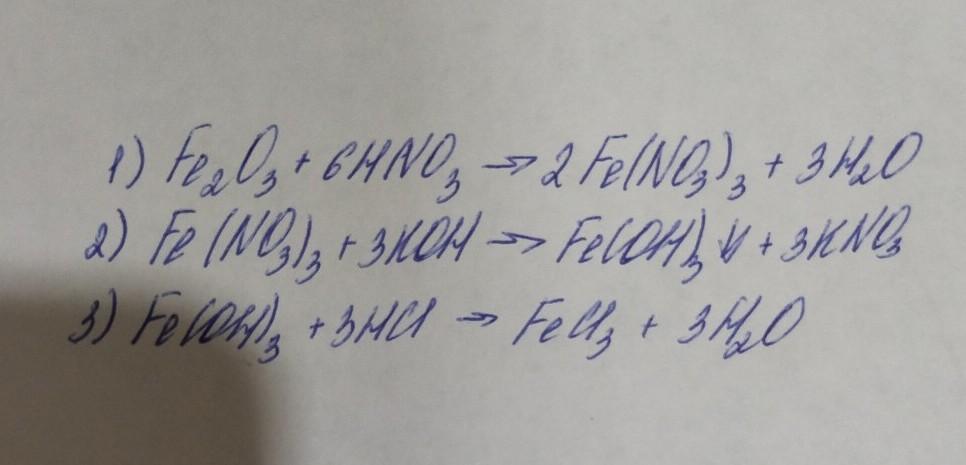 1) Fe₂O₃ + 6HNO₃ → 2Fe(NO₃)₃ + 3H₂O
2) Fe(NO₃)₃ + 3KOH → Fe(OH)₃↓ + 3KNO₃
3) Fe(OH)₃ + 3HCl → FeCl₃ + 3H₂O